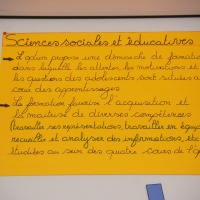 Sciences sociales et éducatives
→ L'option propose une démarche de formation
dans laquelle les attentes, les motivations et
les questions des adolescents sont situées au
cœur des apprentissages
→ La formation favorise l'acquisition et
la maîtrise de diverses compétences
(travailler ses représentations, travailler en équipe
recueillir et analyser des informations, etc
étudiées au sein des quatre cours de l'o